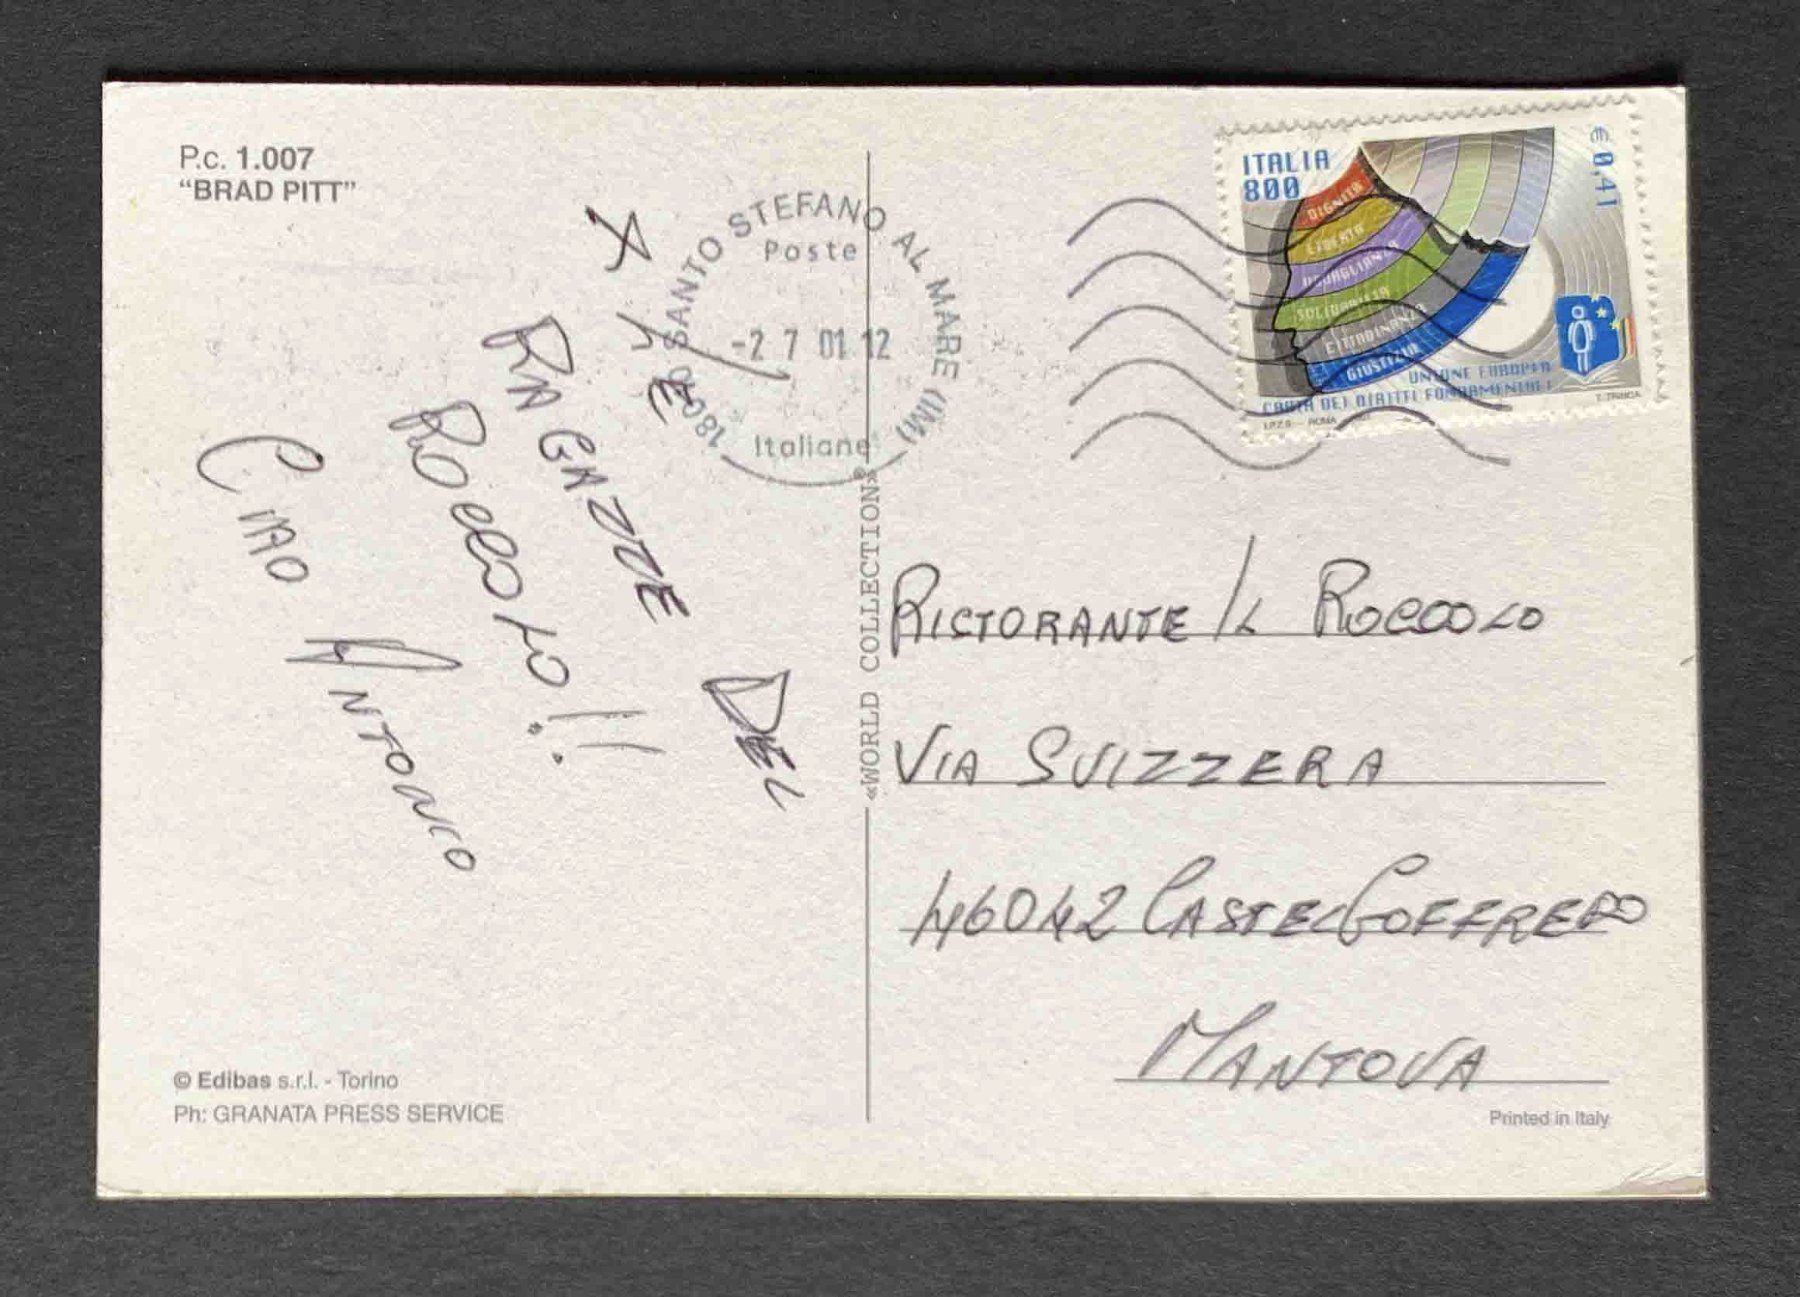 P.c. 1.007
“BRAD PITT”
X LE
RAGAZZE DEL
ROCCOLO!!
CIAO ANTONIO
© Edibas s.r.l. - Torino
Ph: GRANATA PRESS SERVICE
«WORLD COLLECTION»
18010 SANTO STEFANO AL MARE (IM)
Poste
-2 7 01 12
Italiane
ITALIA
800
€ 0,41
DIGNITÀ
LIBERTÀ
UGUAGLIANZA
SOLIDARIETÀ
CITTADINANZA
GIUSTIZIA
UNIONE EUROPEA
CARTA DEI DIRITTI FONDAMENTALI
I.P.Z.S. - ROMA
T. TRINCA
RISTORANTE IL ROCCOLO
VIA SVIZZERA
46042 CASTELGOFFREDO
MANTOVA
Printed in Italy